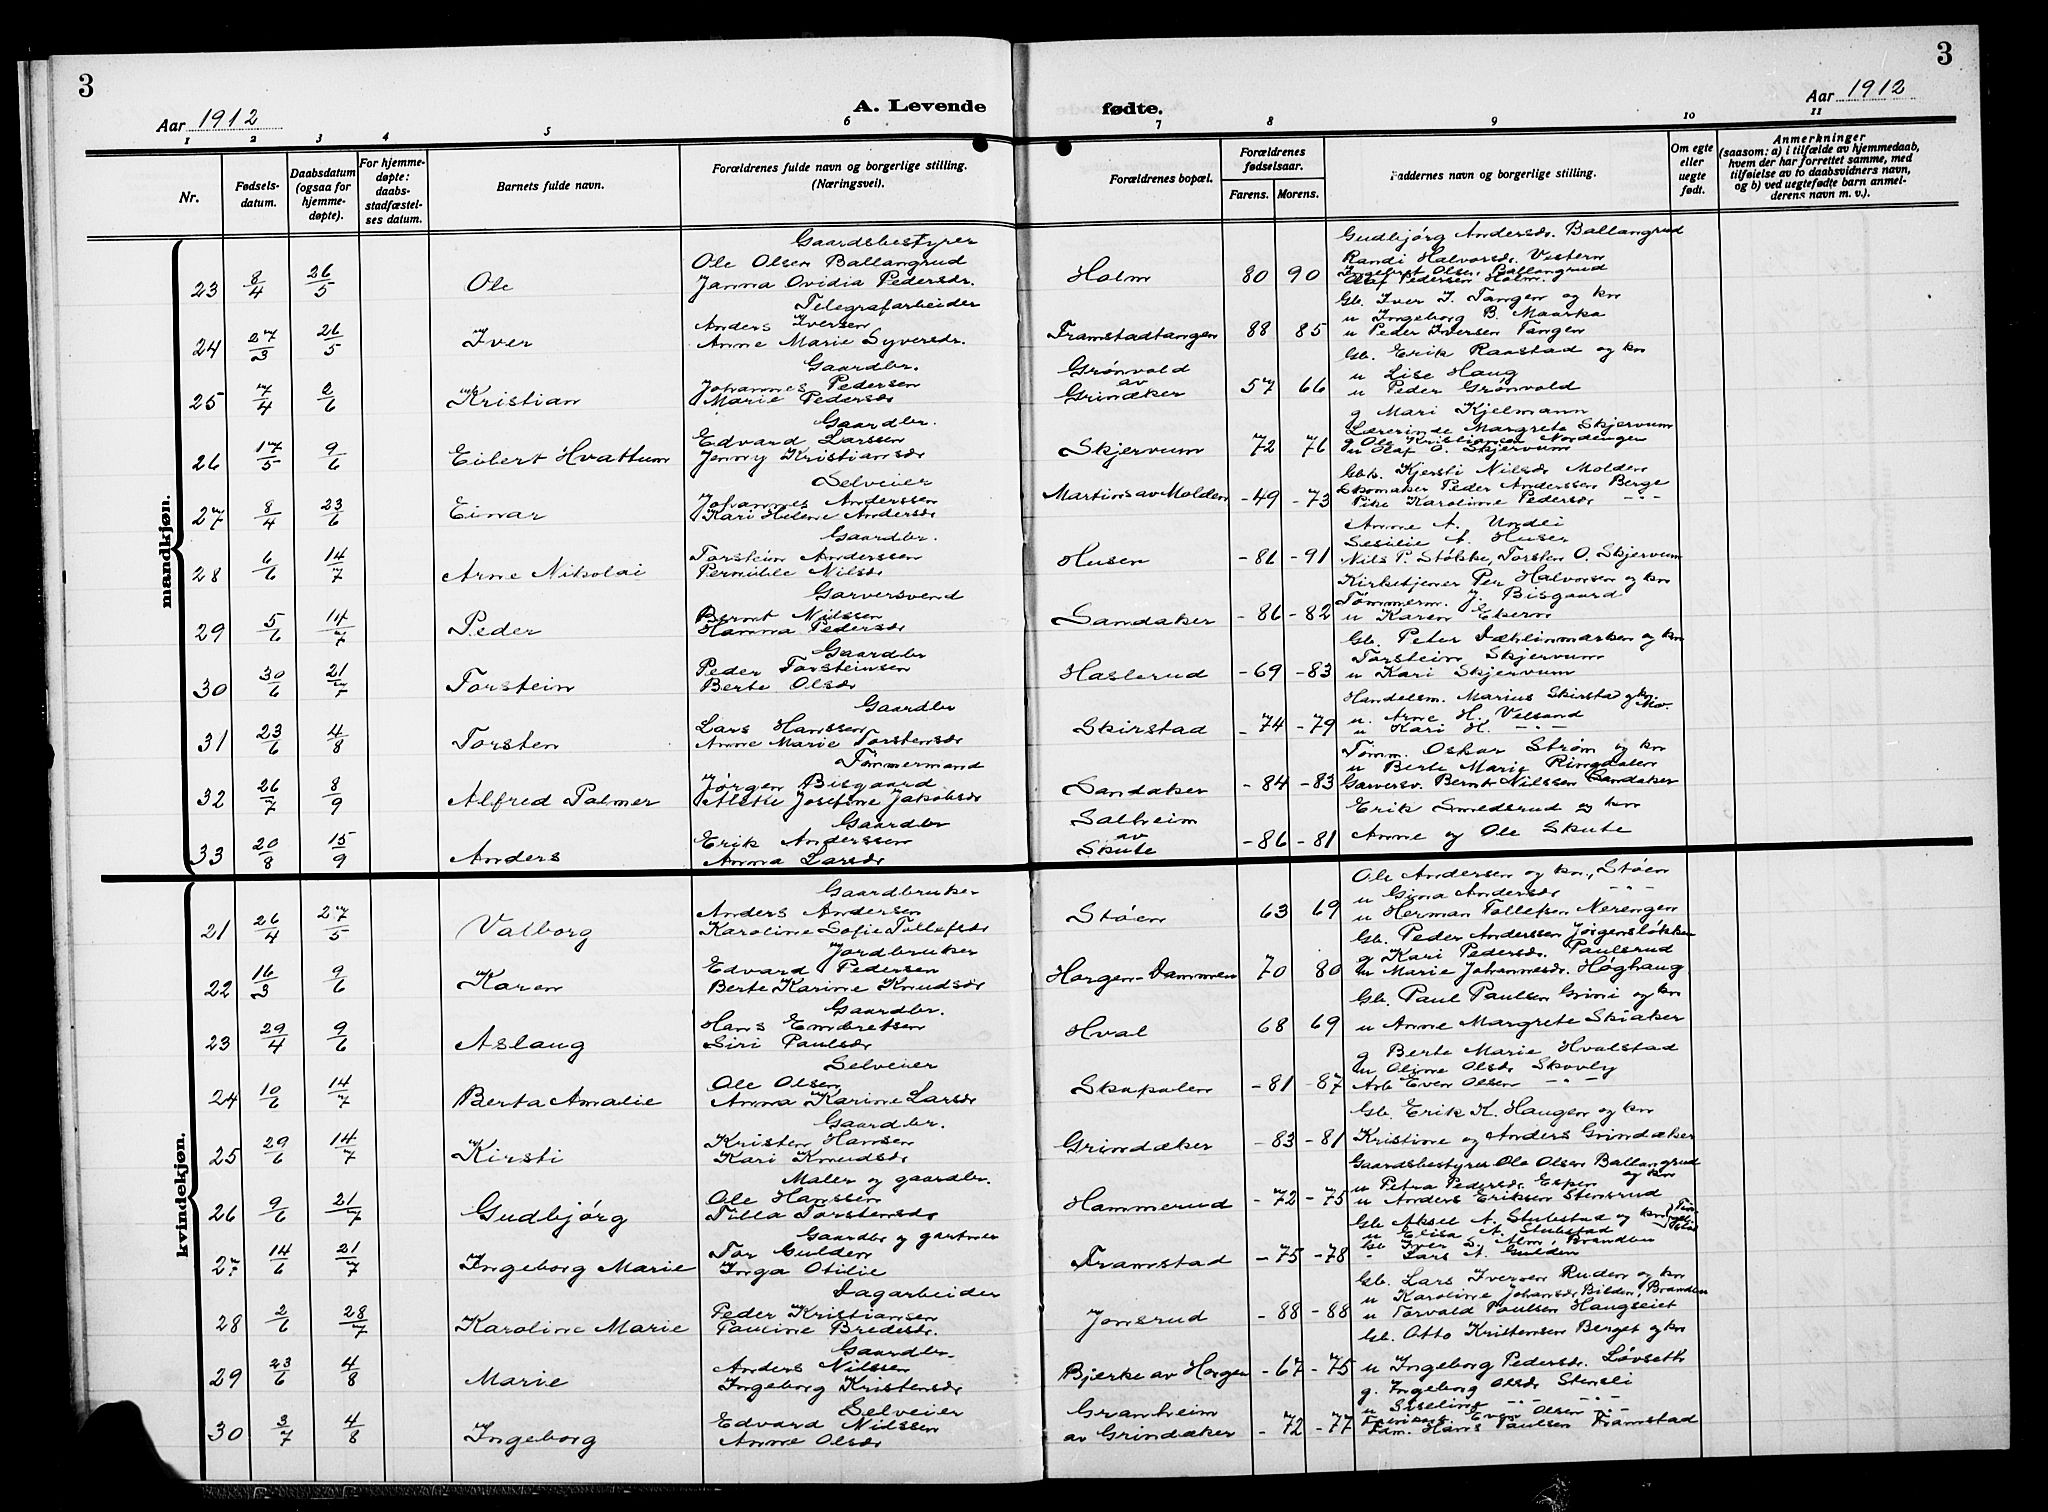 3
3
Aar 1912
A. Levende
fødte.
Aar 1912
1 2 3 4 5 6 7 8 9 10 11
Nr.
Fødsels-datum.
Daabsdatum (ogsaa for hjemme-døpte).
For hjemme-døpte: daabs-stadfæstel-ses datum.
Barnets fulde navn.
Forældrenes fulde navn og borgerlige stilling. (Næringsvei).
Forældrenes bopæl.
Forældrenes fødselsaar.
Farens. Morens.
Faddernes navn og borgerlige stilling.
Om egte eller uegte født.
Anmerkninger
(saasom: a) i tilfælde av hjemmedaab, hvem der har forrettet samme, med tilføielse av to daabsvidners navn, og b) ved uegtefødte barn anmel-derens navn m. v.).
mandkjøn.
Gaardsbestyrer
Ole Olsen Ballangrud
23 8/4 26/5 Ole Janna Ovidia Pedersdr. Holm 80 90
Gudbjørg Andersdr. Ballangrud
Randi Halvorsdr. Vestern
Ingebret Olsen Ballangrud
Olaf Pedersen Holm.
Telegrafarbeider
Anders Iversen
24 27/3 26/5 Iver Anne Marie Syversdr. Framstadtangen 88 85
Gb. Iver I. Tangen og kn
u Ingeborg B. Maarka
u Peder Iversen Tangen
Gaardbr.
Johannes Pedersen
25 7/4 2/6 Kristian Marie Pedersdr Grønvold av Grindæker 57 66
Gb. Erik Raastad og kn
u Lise Haug
u Peder Grønvold
Gaardbr.
Edvard Larssen
26 17/5 9/6 Eilert Hvattum Jenny Kristiansdr Skjervum 72 76
g Mari Kjelmann
Lærerinde Margrete Skjervum
g Ole Kristiansen Nordengen
u Olaf O. Skjervum
Selveier
Johannes Anderssen
27 8/4 23/6 Einar Kari Helene Andersdr Martins av Molden -49 -73
Gbs. Kjersti Nilsdr Molden
Skomaker Peder Anderssen Berge
Pike Karoline Pedersdr -"-
Gaardbr.
Torstein Anderssen
28 6/6 14/7 Arne Nikolai Pernille Nilsdr Husen -81 -91
Anne A. Undei
Sesilie A. Huser
Nils P. Stølske, Torsten O. Skjervum
Garversvend
Bernt Nilssen
29 5/6 14/7 Peder Hanna Pedersdr Sandaker -86 -82
Kirketjener Per Halvorsen og kn
Tømmerm. J. Bisgaard
u Karen Ekern
Gaardbr
Peder Torsteinsen
30 30/6 21/7 Torstein Berte Olsdr Haslerud -69 -83
Gb. Peter Dæhlinmarken og kn
Torstein Skjervum
u Kari Skjervum
Gaardbr
Lars Hanssen
31 23/6 4/8 Torsten Anne Marie Torstensdr Skirstad -74 -79
Handelsm. Marius Skirstad og kn.
u. Arne H. Velsand
u Kari H. -"-
Tømmermand
Jørgen Bisgaard
32 26/7 8/9 Alfred Palmer Alette Josefine Jakobsdr Sandaker -84 -83
Tømm. Oskar Strøm og kn
u Berte Marie Ringdalen
Garversv. Bernt Nilssen Sandaker
Gaardbr
Erik Anderssen
33 20/8 15/9 Anders Anna Larsdr Solheim av Skute -86 -81
Erik Smedsrud og kn
Anne og Ole Skute
kvindekjøn.
Gaardbruker
Anders Andersen
21 26/4 27/5 Valborg Karoline Sofie Tollefsdr Støen 63 69
Ole Andersen og kn, Støen
u Gina Andersdr -"-
u Herman Tollefsen Nerengen
Jordbruker
Edvard Pedersen
22 16/3 9/6 Karen Berte Karine Knudsdr Horgen-Dammen 70 80
Gb. Peder Anderssen Jørgensløkken
g Kari Pedersdr. Paulsrud
u Marie Johannesdr. Høghaug
Gaardbr.
Hans Embretsen
23 29/4 9/6 Aslaug Siri Paulsdr Hval 68 69
Gb. Paul Paulsen Grini og kn
u Anne Margrete Skiaker
Selveier
Ole Olsen
24 10/6 14/7 Berta Amalie Anna Karine Larsdr Skapalen -81 -87
g Berte Marie Hvalstad
u Oline Olsdr Skovly
Arb Even Olsen -"-
Gaardbr.
Kristen Hansen
25 29/6 14/7 Kirsti Kari Knudsdr Grindaker -83 -81
Gb. Erik K. Haugen og kn
Kristine og Anders Grindaker
Maler og gaardbr.
Ole Hanssen
26 9/6 21/7 Gudbjørg Tilla Torstensdr Hammerud -72 -75
Gaardsbestyrer Ole Olsen Ballangrud og kn
u Petra Pedersdr. Espen
u Anders Eriksen Stensrud
Gaardbr og gartner
Tor Gulden
27 14/6 21/7 Ingeborg Marie Inga Otilie Framstad -75 -78
Gb Aksel A. Stubstad og kn
u Elisa A. Stubstad
Gb. Iver D. Alm, Brandbu
- Lars A. Gulden
Dagarbeider
Peder Kristiansen
28 2/6 28/7 Karoline Marie Pauline Bredesdr. Jonsrud -88 -88
Gb. Lars Iversen Ruden og kn
u Karoline Johansdr Bilden, Brandbu
u Torvald Paulsen Haugseiet
Gaardbr.
Anders Nilssen
29 23/6 4/8 Marie Ingeborg Kristensdr Bjerke av Horgen -67 -75
Gb. Otto Kristensen Berget og kn
u Ingeborg Pedersdr. Løvseth
Selveier
Edvard Nilssen
30 3/7 4/8 Ingeborg Anne Olsdr Granheim av Grindaker -72 -77
g. Ingeborg Olsdr Stensli
u Siseline -"-
Even Olsen -"-
Hans Paulsen Framstad